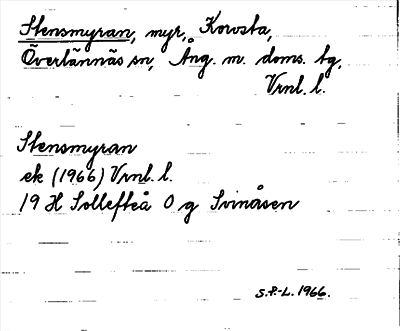 Stensmyran, myr, Korvsta,
Överlännäs sn, Ång. m. doms. tg,
Vrnl. l.
Stensmyran
ek (1966) Vrnl. l.
19 H Sollefteå O g Svinåsen
S.P.-L. 1966.